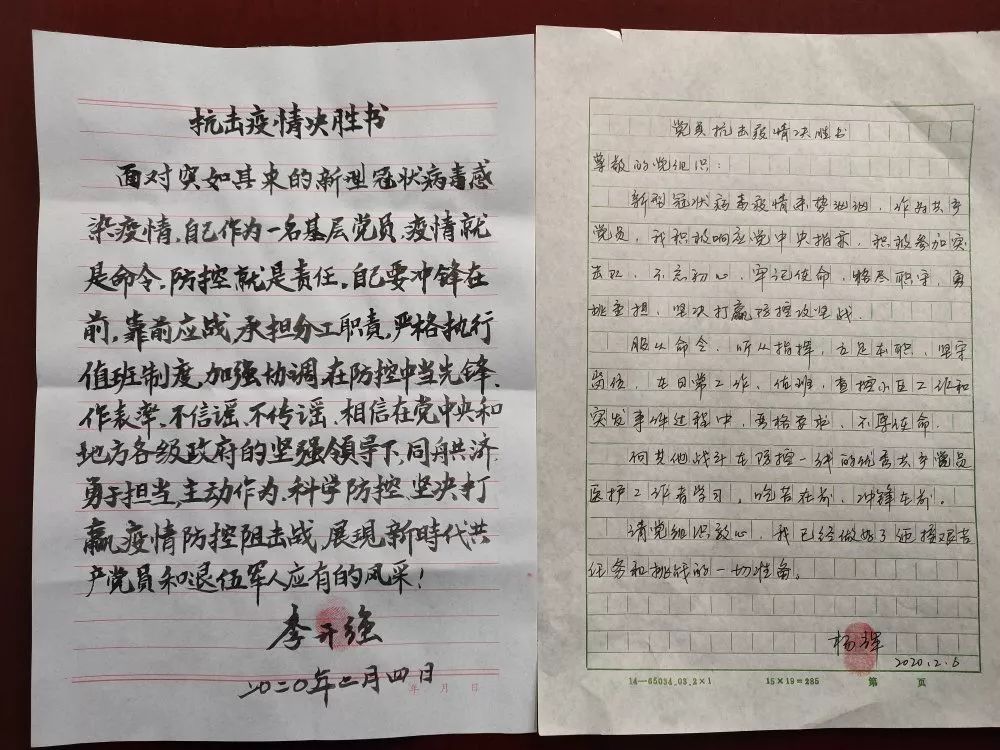 抗击疫情决胜书
面对突如其来的新型冠状病毒感
染疫情，自己作为一名基层党员，疫情就
是命令，防控就是责任。自己要冲锋在
前，靠前应战，承担分工职责，严格执行
值班制度，加强协调，在防控中当先锋、
作表率，不信谣、不传谣，相信在党中央和
地方各级政府的坚强领导下，同舟共济，
勇于担当，主动作为，科学防控，坚决打
赢疫情防控阻击战，展现新時代共
产党员和退伍军人应有的风采！
李开强
二〇二〇年二月四日
年 月 日
党员抗击疫情决胜书
尊敬的党组织：
新型冠状病毒疫情来势汹汹，作为共产
党员，我积极响应党中央指示，积极参加突
击队，不忘初心，牢记使命，恪尽职守，勇
挑重担，坚决打赢防控攻坚战。
服从命令，听从指挥，立足本职，坚守
岗位，在日常工作、值班，查控小区工作和
突发事件过程中，严格要求，不辱使命。
向其他战斗在防控一线的优秀共产党员
医护工作者学习，吃苦在前，冲锋在前。
请党组织放心，我已经做好了迎接艰苦
任务和挑战的一切准备。
杨辉
2020.2.5
14—65034.03.2×1 15×19=285 第 页